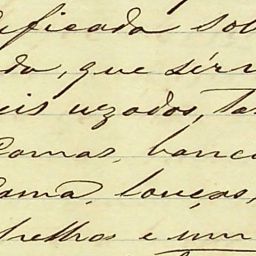 ificada sob
da, que sir
eis uzados, ta
Camas, banc
Cama, louças,
trelhos e um